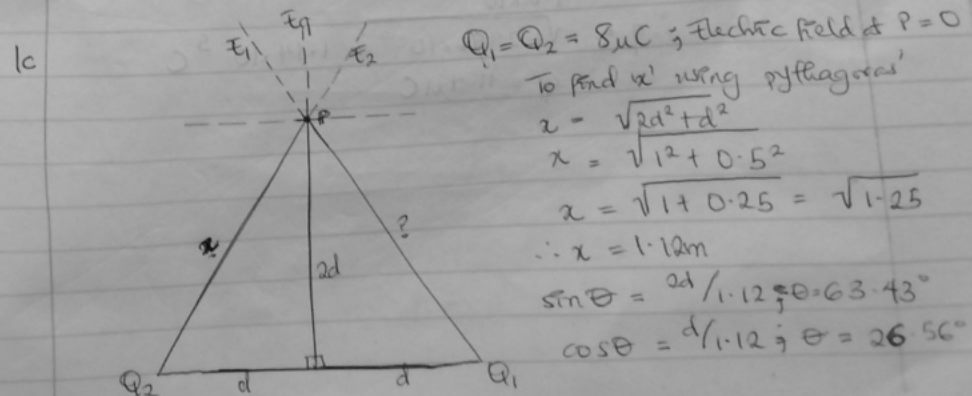 1c
E₁ Eq E₂
P
x
?
2d
Q₂ d d Q₁
Q₁ = Q₂ = 8μC ; Electric field at P = 0
To find 'x' using pythagoras'
x = √2d² + d²
x = √1² + 0.5²
x = √1 + 0.25 = √1.25
∴ x = 1.12m
sinθ = 2d/1.12 ; θ = 63.43°
cosθ = d/1.12 ; θ = 26.56°